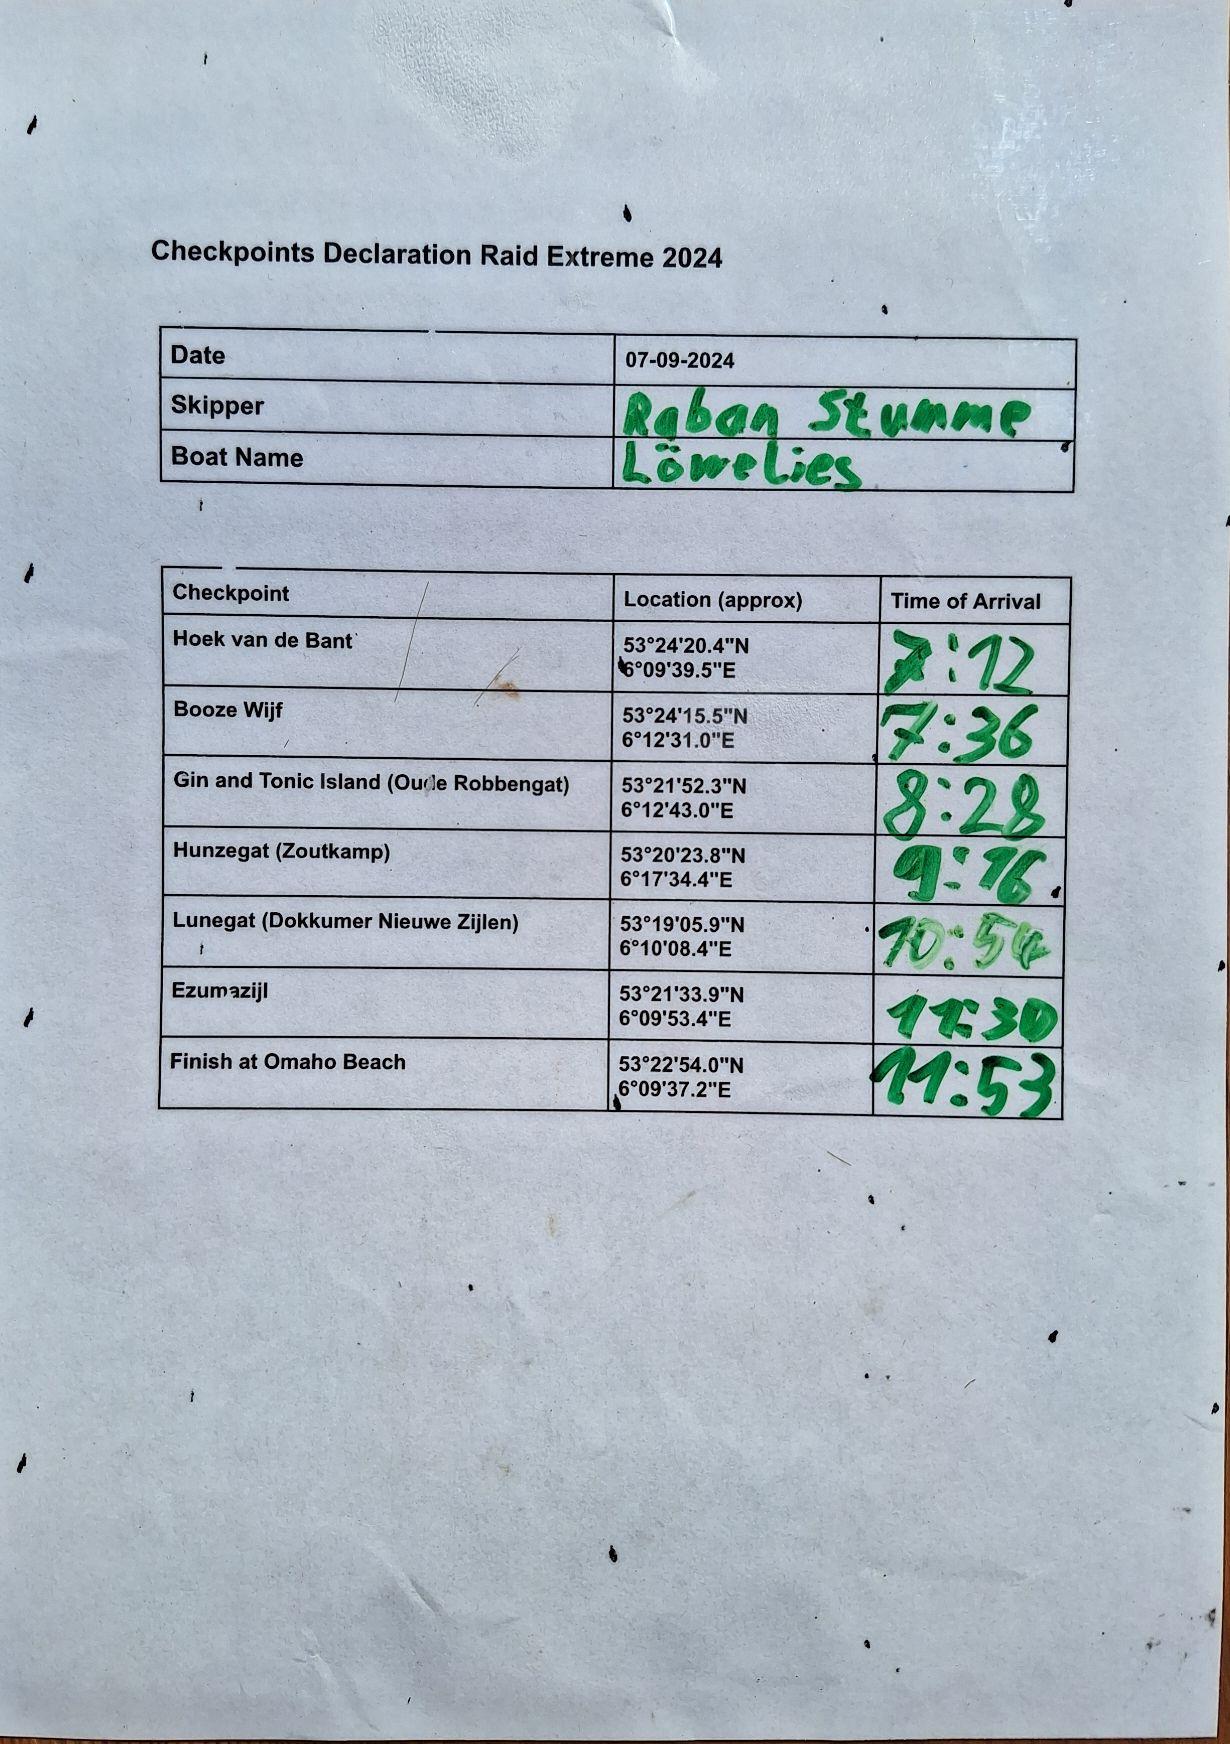 Checkpoints Declaration Raid Extreme 2024
Date 07-09-2024
Skipper Raban Stumme
Boat Name Löwelies
Checkpoint Location (approx) Time of Arrival
Hoek van de Bant 53°24'20.4"N 7:12
6°09'39.5"E
Booze Wijf 53°24'15.5"N 7:36
6°12'31.0"E
Gin and Tonic Island (Oude Robbengat) 53°21'52.3"N 8:28
6°12'43.0"E
Hunzegat (Zoutkamp) 53°20'23.8"N 9:16
6°17'34.4"E
Lunegat (Dokkumer Nieuwe Zijlen) 53°19'05.9"N 10:54
6°10'08.4"E
Ezumazijl 53°21'33.9"N 11:30
6°09'53.4"E
Finish at Omaho Beach 53°22'54.0"N 11:53
6°09'37.2"E